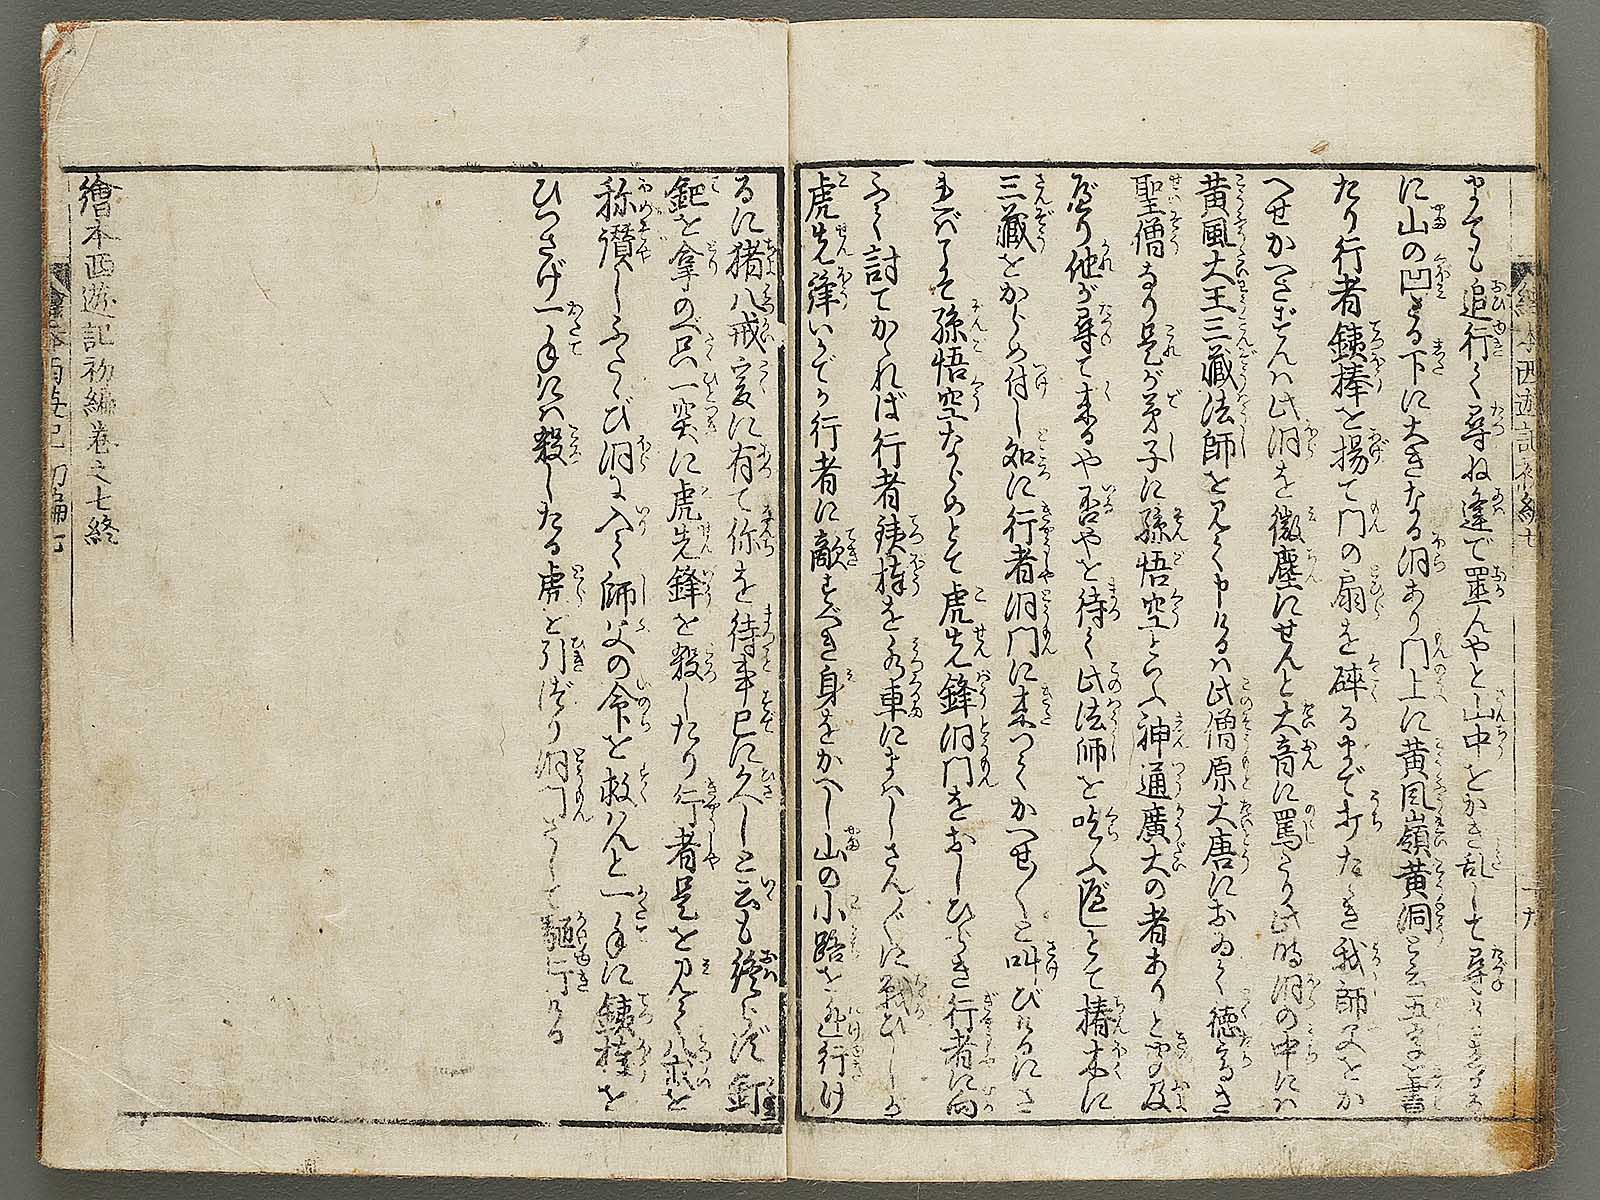 までも追行く尋ね逢で置んやと山中をかき乱して尋
に山の凹なる下に大きなる洞あり門上に黄風嶺黄洞と云五字を書
たり行者鉄棒を揚て門の扇を砕るまで打たゝき我師父をか
へせかへさずんハ此洞を微塵にせんと大音に罵る此時洞の中にハ
黄風大王三藏法師を見て申けるハ此僧原大唐におゐて徳高き
聖僧なり是が弟子に孫悟空といふ神通廣大の者ありと聞及
べり他が尋て来るや否やを待て此法師を吃ふ可しとて椿木に
三藏をからめ付し処に行者洞門に来つてかへせ〳〵と叫びけるにさ
ればこそ孫悟空ならめとて虎先鋒洞門をおしひらき行者に向
ふて討てかゝれば行者鉄棒を水車にまハしさん〴〵に戦ひしが
虎先鋒いかでか行者に敵すべき身をかへし山の小路を迯行け
るに猪八戒爰に有て你を待事已に久しと云も終らず釘
鈀を拿のべ只一突に虎先鋒を殺したり行者是を見て八戒を
称讃しふたゝび洞に入て師父の命を救ハんと一手に鉄棒を
ひつさげ一手にハ殺したる虎を引ずり洞門さして馳行ける
繪本西遊記初編巻之七終